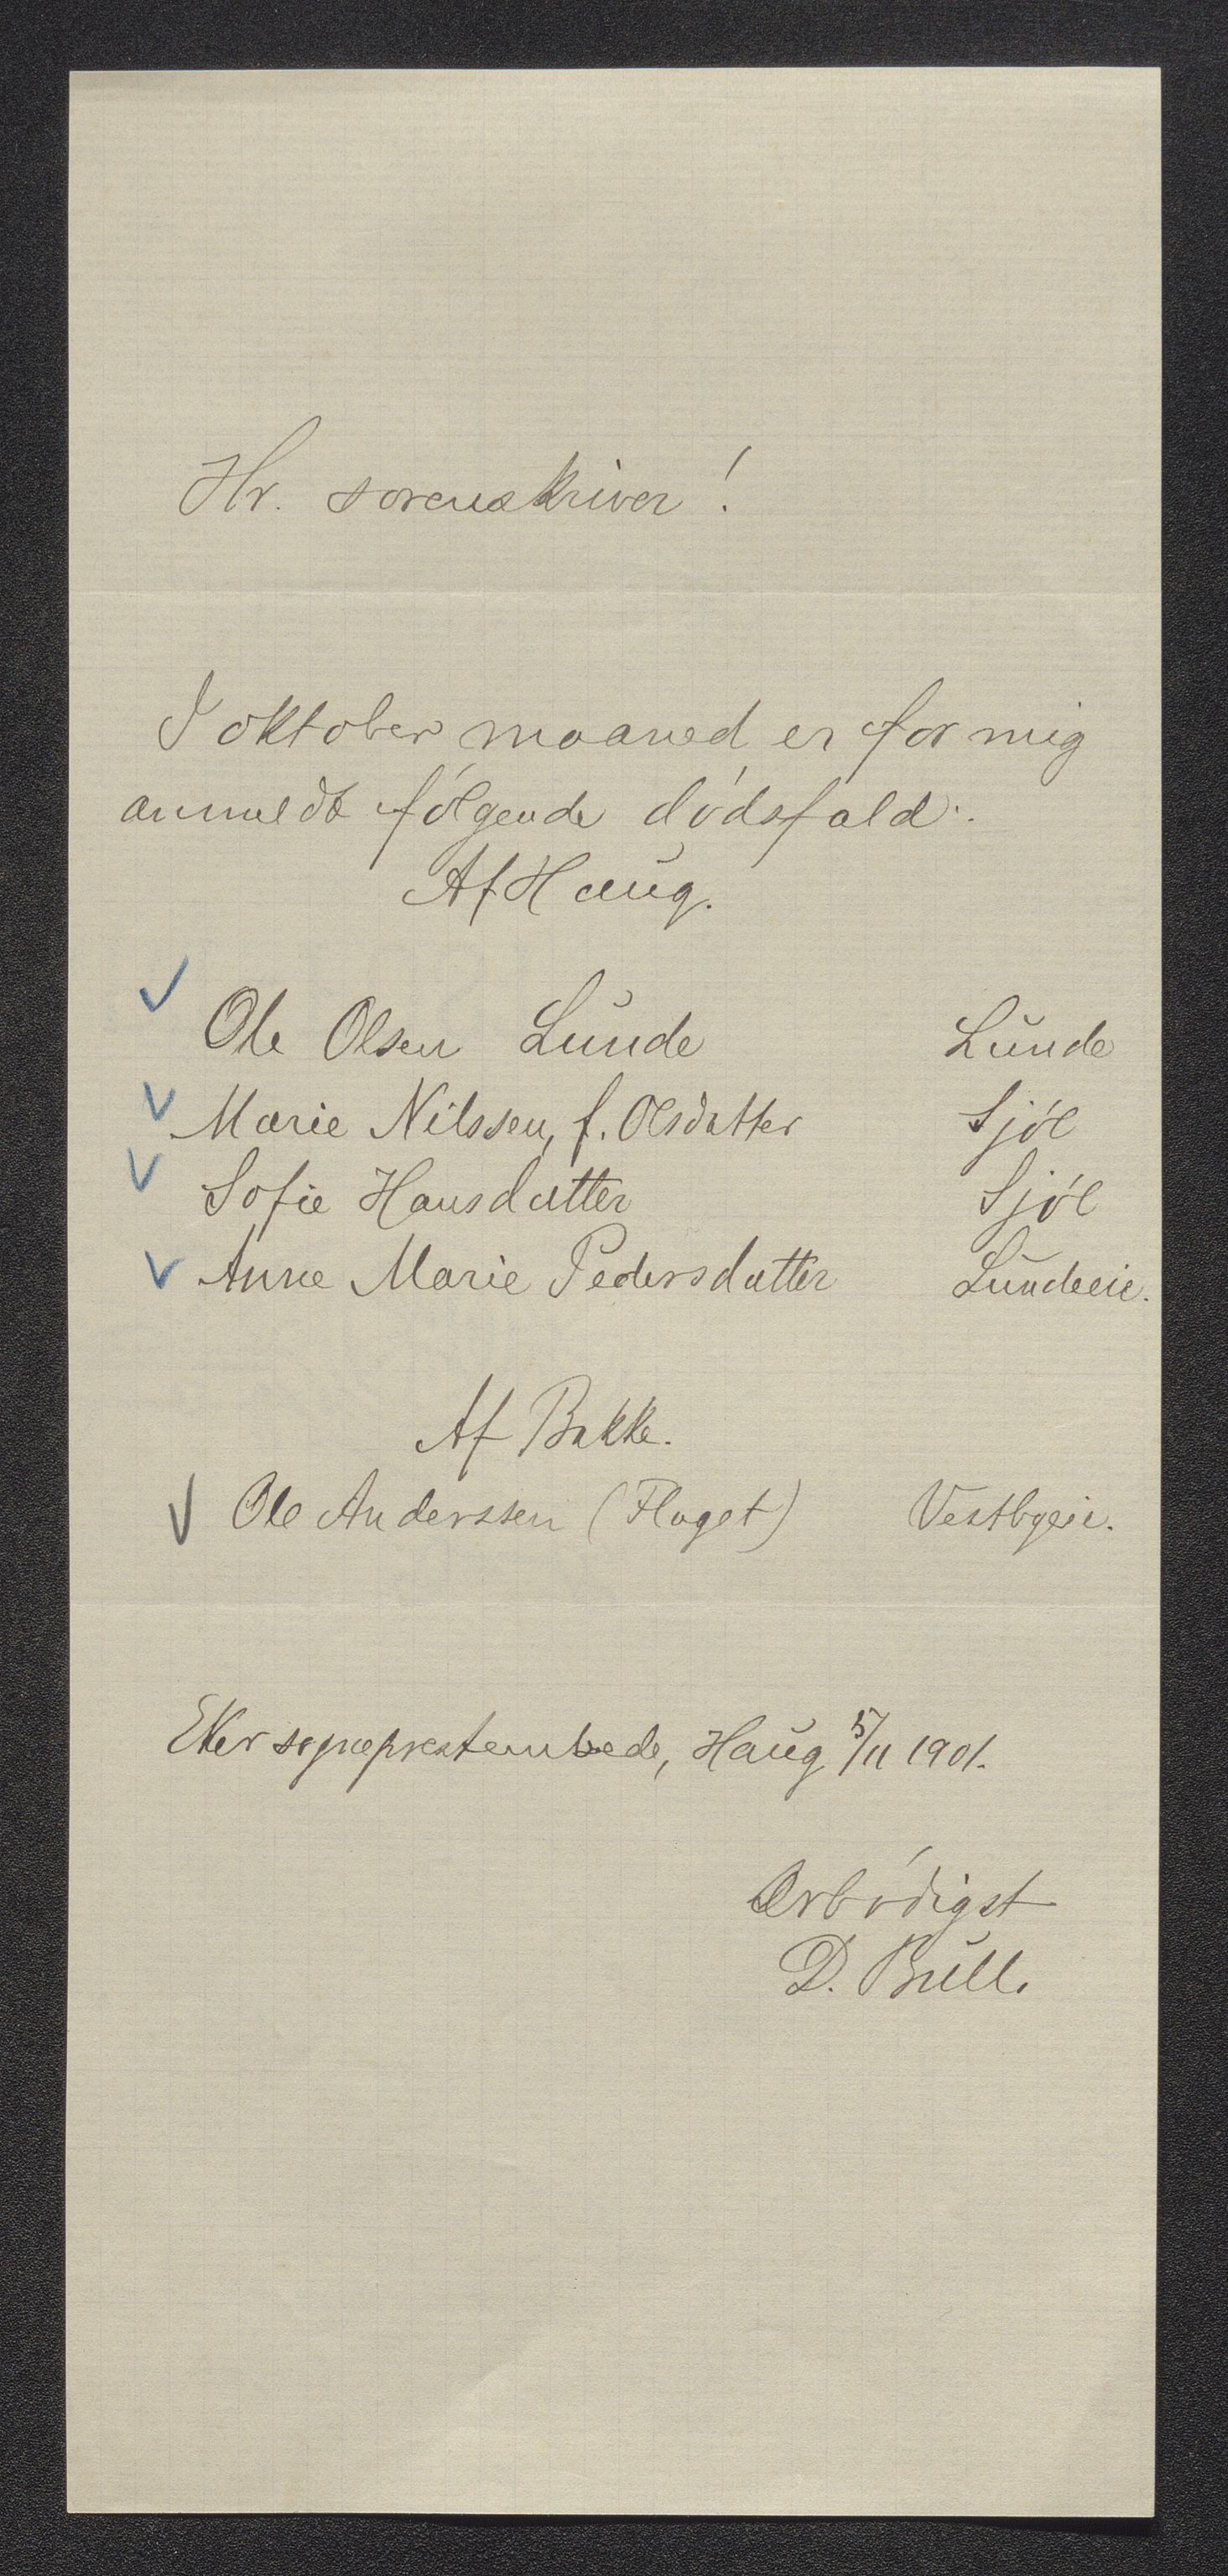 Hr. sorenskriver!
I oktober maaned er for mig
anmeldt følgende dødsfald:
Af Haug.
✓ Ole Olsen Lunde Lunde
✓ Marie Nilssen, f. Olsdatter Sjøl
✓ Sofie Hansdatter Sjøl
✓ Anne Marie Pedersdatter Lundeeie.
Af Bakke.
✓ Ole Anderssen (Flaget) Vestbyeie.
Eker sogneprestembede, Haug 5/11 1901.
Ærbødigst
D. Bull.